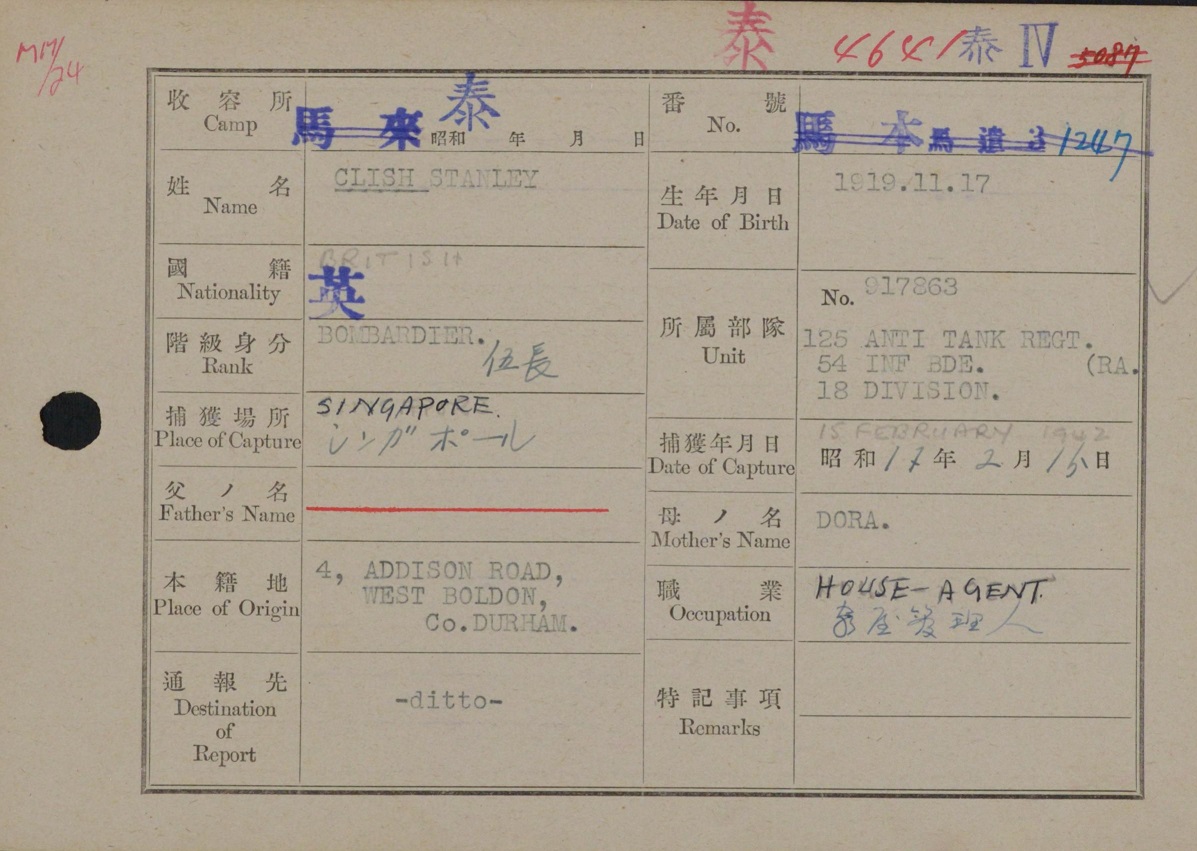 MM/24
泰 4641 泰 IV 5087
收容所
Camp
馬來 泰
昭和 年 月 日
番號
No.
馬本 馬遣 1247
姓名
Name
CLISH STANLEY
生年月日
Date of Birth
1919.11.17
國籍
Nationality
BRITISH
英
階級身分
Rank
BOMBARDIER.
伍長
所屬部隊
Unit
No. 917863
125 ANTI TANK REGT.
54 INF BDE. (RA.
18 DIVISION.
捕獲場所
Place of Capture
SINGAPORE.
シンガポール
捕獲年月日
Date of Capture
15 FEBRUARY 1942
昭和17年2月15日
父ノ名
Father's Name
母ノ名
Mother's Name
DORA.
本籍地
Place of Origin
4, ADDISON ROAD,
WEST BOLDON,
Co.DURHAM.
職業
Occupation
HOUSE-AGENT.
家屋管理人
通報先
Destination
of
Report
-ditto-
特記事項
Remarks